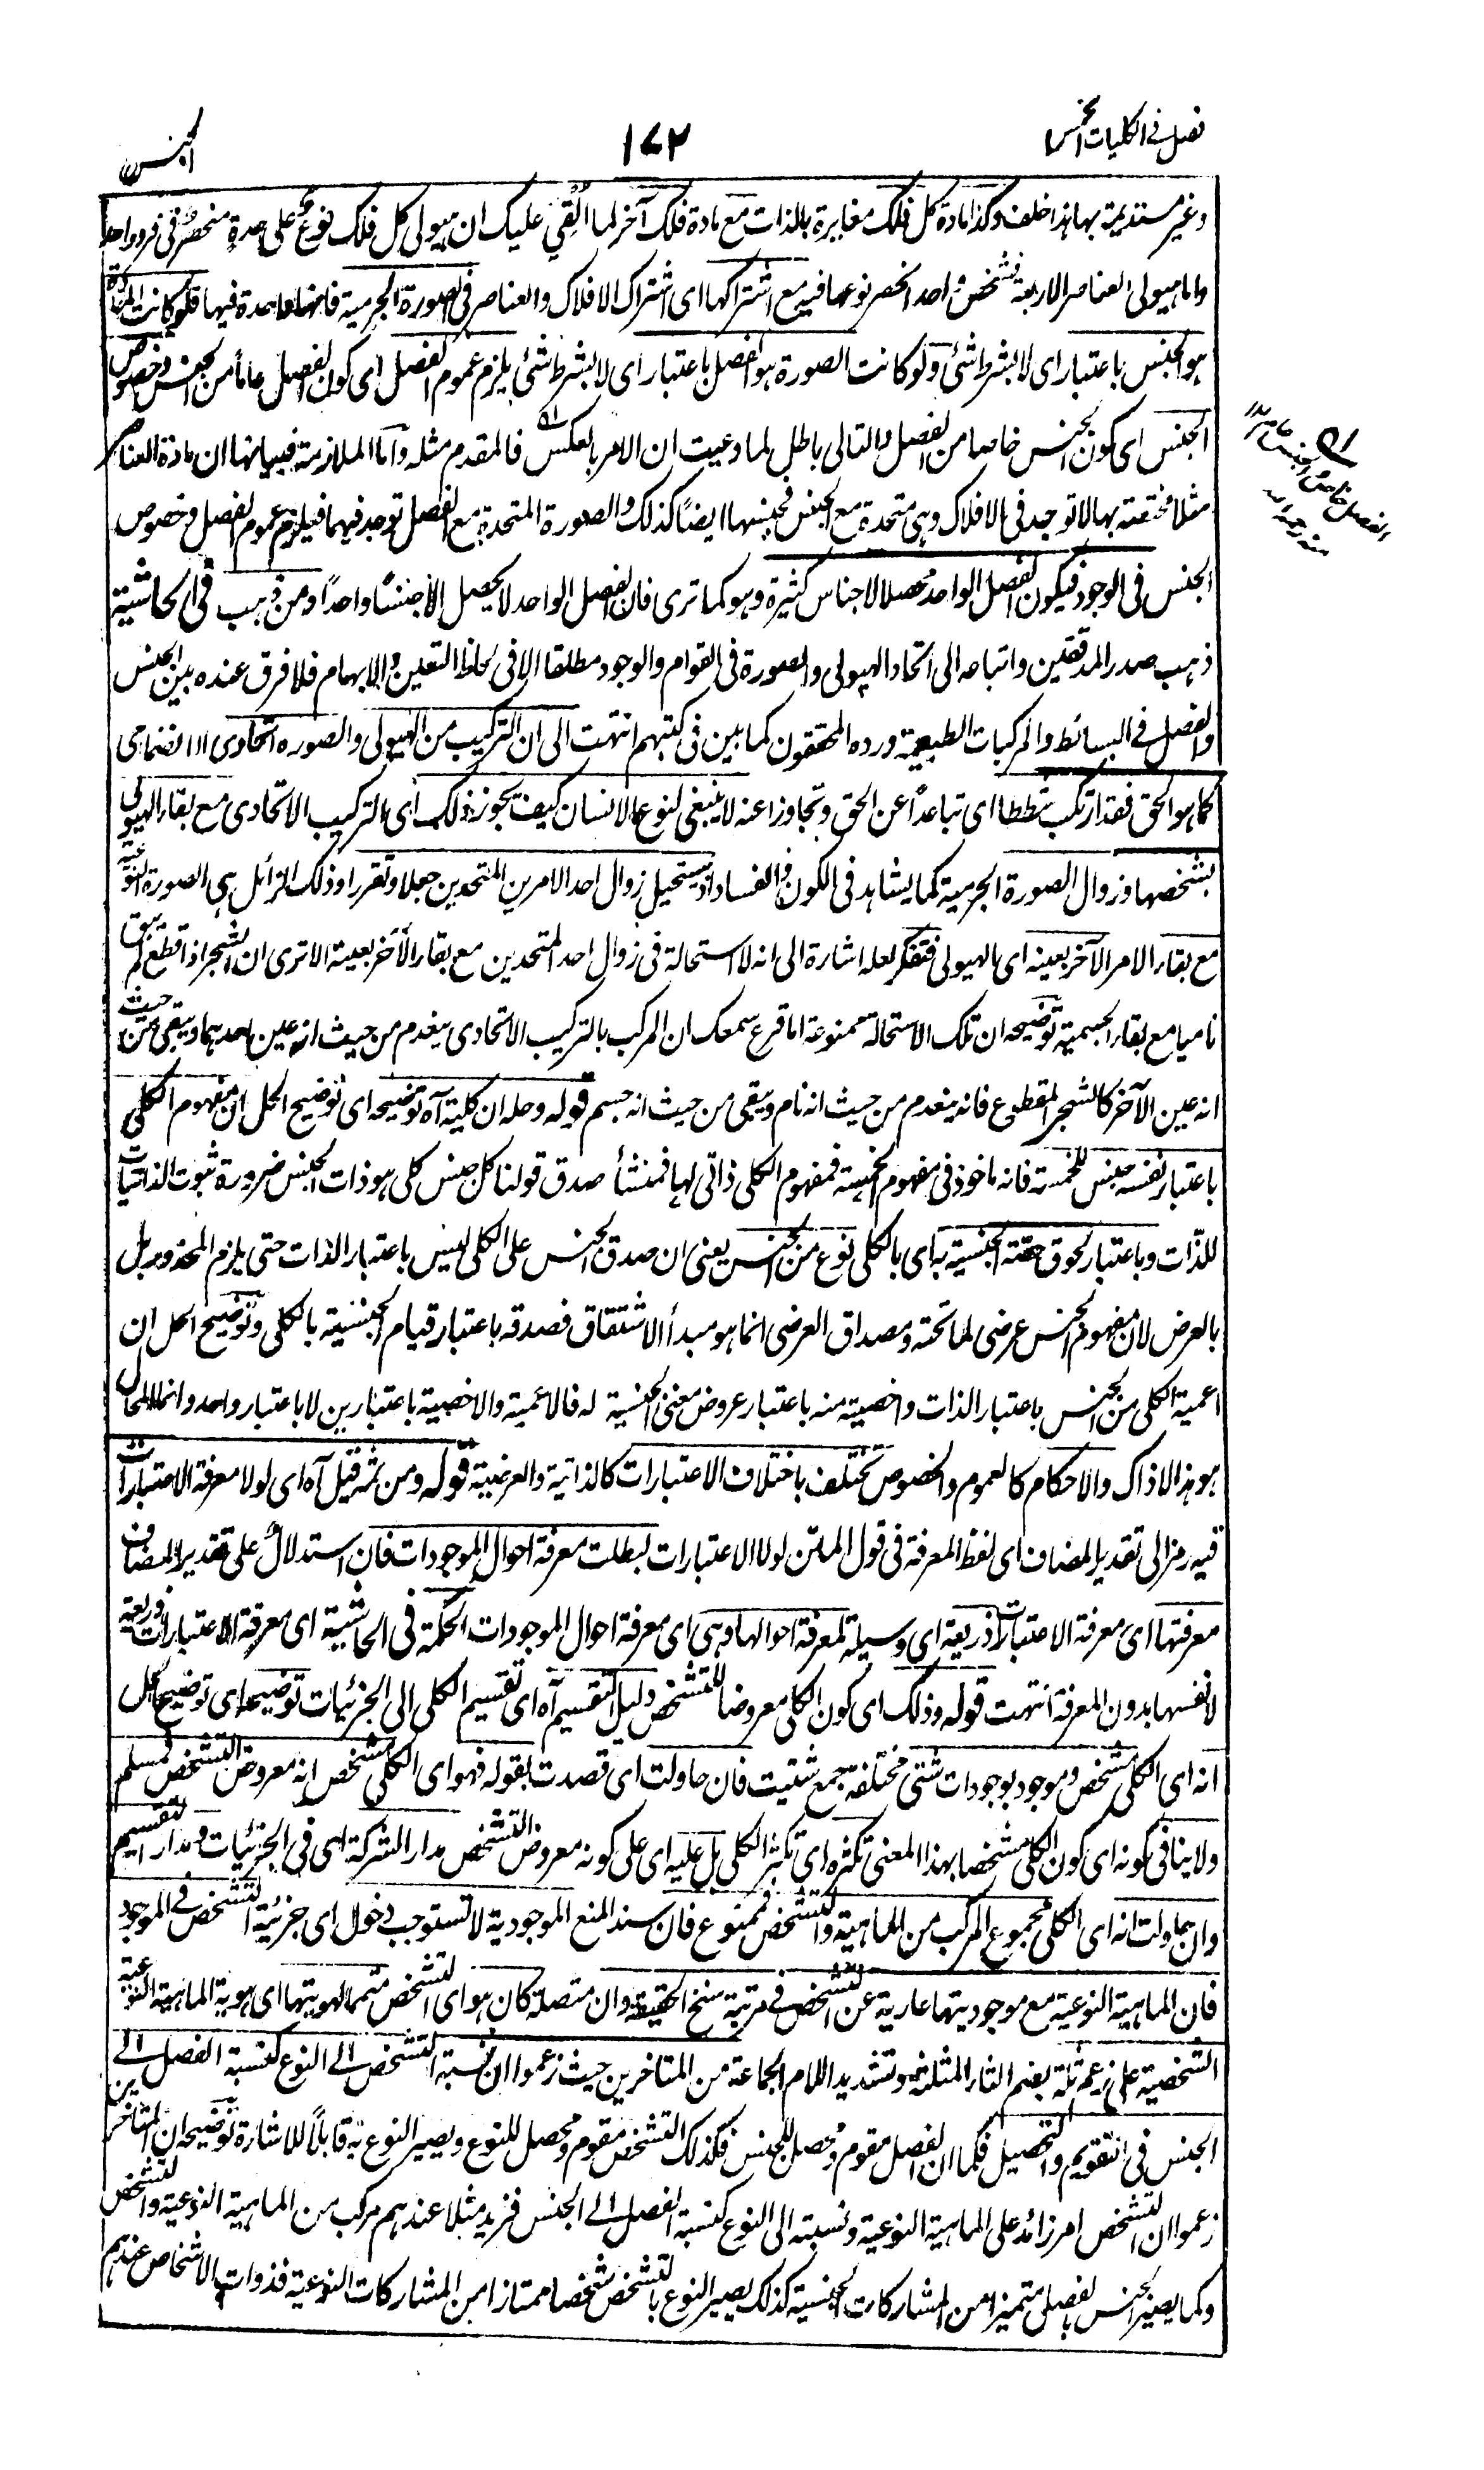 فصل في الكليات الخمس
١٧٢
الجنس
وغير مستديمة بها هذا خلف وكذا مادة كل فلك مغايرة بالذات مع مادة فلك آخر لما اُلْقِيَ عليك ان هيولى كل فلك نوعٌ على حدةٍ منحصرٌ في فرد واحد
واما هيولى العناصر الاربعة فشخصٌ واحد انحصر نوعها فيه مع اشتراكها اى اشتراك الافلاك والعناصر في الصورة الجرمية فانها واحدة فيها فلو كانت المادة
هو الجنس باعتبار اى لا بشرط شئ ولو كانت الصورة هو الفصل باعتبار اى لا بشرط شئ يلزم عموم الفصل اى كون الفصل عاما من الجنس وخصوص
الجنس اى كون الجنس خاصا من الفصل والتالى باطل لما وعيت ان الامر بالعكس فالمقدم مثله واما الملازمة فبيانها ان مادة العناصر
مثلا مختصة بها لا توجد في الافلاك وهى متحدة مع الجنس فجنسها ايضًا كذلك والصورة المتحدة مع الفصل توجد فيهما فيلزم عموم الفصل وخصوص
الجنس في الوجود فيكون الفصل الواحد محصلا لاجناس كثيرة وهو كما ترى فان الفصل الواحد لا يحصل الا جنسًا واحدًا ومن ذهب في الحاشية
ذهب صدر المدققين واتباعه الى اتحاد الهيولى والصورة في القوام والوجود مطلقا الا في لحاظ التعين والابهام فلا فرق عنده بين الجنس
والفصل في البسائط والمركبات الطبيعية ورده المحققون كما بين في كتبهم انتهت الى ان التركيب من الهيولى والصورة اتحادى لا انضمامى
كما هو الحق فقد ارتكب شططا اى تباعدًا عن الحق وتجاوزا عنه لا ينبغى لنوع الانسان كيف يجوز ذلك اى التركيب الاتحادى مع بقاء الهيولى
بشخصها وزوال الصورة الجرمية كما يشاهد في الكون والفساد اذ يستحيل زوال احد الامرين المتحدين جعلا وتقررا وذلك الزائل هى الصورة النوعية
مع بقاء الامر الآخر بعينه اى الهيولى فتفكر لعله اشارة الى انه لا استحالة في زوال احد المتحدين مع بقاء الآخر بعينه الا ترى ان الشجر اذا قطع لم يبق
ناميا مع بقاء الجسمية توضيحه ان تلك الاستحالة ممنوعة اما قرع سمعك ان المركب بالتركيب الاتحادى ينعدم من حيث انه عين احدهما ويبقى من حيث
انه عين الآخر كالشجر المقطوع فانه ينعدم من حيث انه نام ويبقى من حيث انه جسم قوله وحله ان كلية آه توضيحه اى توضيح الحل ان مفهوم الكلى
باعتبار نفسه جنس للخمسة فانه ماخوذ في مفهوم الخمسة فمفهوم الكلى ذاتى لها فمنشأ صدق قولنا كل جنس كلى هو ذات الجنس ضرورة ثبوت الذاتيات
للذّات وباعتبار لحوق حصة الجنسية به اى بالكلى نوع من الجنس يعنى ان صدق الجنس على الكلى ليس باعتبار الذات حتى يلزم المحذور بل
بالعرض لان مفهوم الجنس عرضى لما تحته ومصداق العرضى انما هو مبدأ الاشتقاق فصدقه باعتبار قيام الجنسية بالكلى وتوضيح الحل ان
اعمية الكلى من الجنس باعتبار الذات واخصيته منه باعتبار عروض معنى الجنسية له فالاعمية والاخصية باعتبارين لا باعتبار واحد وانما المحال
هو هذا لا ذاك والاحكام كالعموم والخصوص تختلف باختلاف الاعتبارات كالذاتية والعرضية قوله ومن ثمه قيل آه اى لولا معرفة الاعتبارات
فيه رمز الى تقدير المضاف اى لفظ المعرفة في قول الماتن لولا الاعتبارات لبطلت معرفة احوال الموجودات فان استدلالٌ على تقدير المضاف
معرفتها اى معرفة الاعتبارات ذريعة اى وسيلة لمعرفة احوالها وهى اى معرفة احوال الموجودات الحكمة في الحاشية اى معرفة الاعتبارات ذريعة
لا نفسها بدون المعرفة انتهت قوله وذلك اى كون الكلى معروضا للتشخص دليل التقسيم آه اى تقسيم الكلى الى الجزئيات توضيحه اى توضيح الحل
انه اى الكلى متشخص وموجود بوجودات شتى مختلفة جمع شتيت فان حاولت اى قصدت بقوله فهو اى الكلى متشخص انه معروض التشخص فمسلم
ولا ينافى كونه اى كون الكلى متشخصا بهذا المعنى تكثره اى تكثر الكلى بل عليه اى على كونه معروض التشخص مدار الشركة اى في الجزئيات ومدار التقسيم
وان حاولت انه اى الكلى مجموع المركب من الماهية والتشخص فممنوع فان سند المنع الموجودية لا تستوجب دخول اى جزئية التشخص في الموجود
فان الماهية النوعية مع موجوديتها عارية عن التشخص في مرتبة سنخ الحقيقة وان متصلة كان هو اى التشخص متمما لهويتها اى هوية الماهية النوعية
الشخصية على زعم ثلة بضم الثاء المثلثة وتشديد اللام الجماعة من المتاخرين حيث زعموا ان نسبة التشخص الى النوع كنسبة الفصل الى
الجنس في التقويم والتحصيل فكما ان الفصل مقوم ومحصل للجنس فكذلك التشخص مقوم ومحصل للنوع ويصير النوع به قابلًا للاشارة توضيحه ان المتاخرين
زعموا ان التشخص امر زائد على الماهية النوعية ونسبته الى النوع كنسبة الفصل الى الجنس فزيد مثلا عندهم مركب من الماهية النوعية والتشخص
وكما يصير الجنس بالفصل متميزا من المشاركات الجنسية كذلك يصير النوع بالتشخص شخصا ممتازا من المشاركات النوعية فذوات الاشخاص عندهم
الفصل خاص والجنس عام
منه رحمه الله